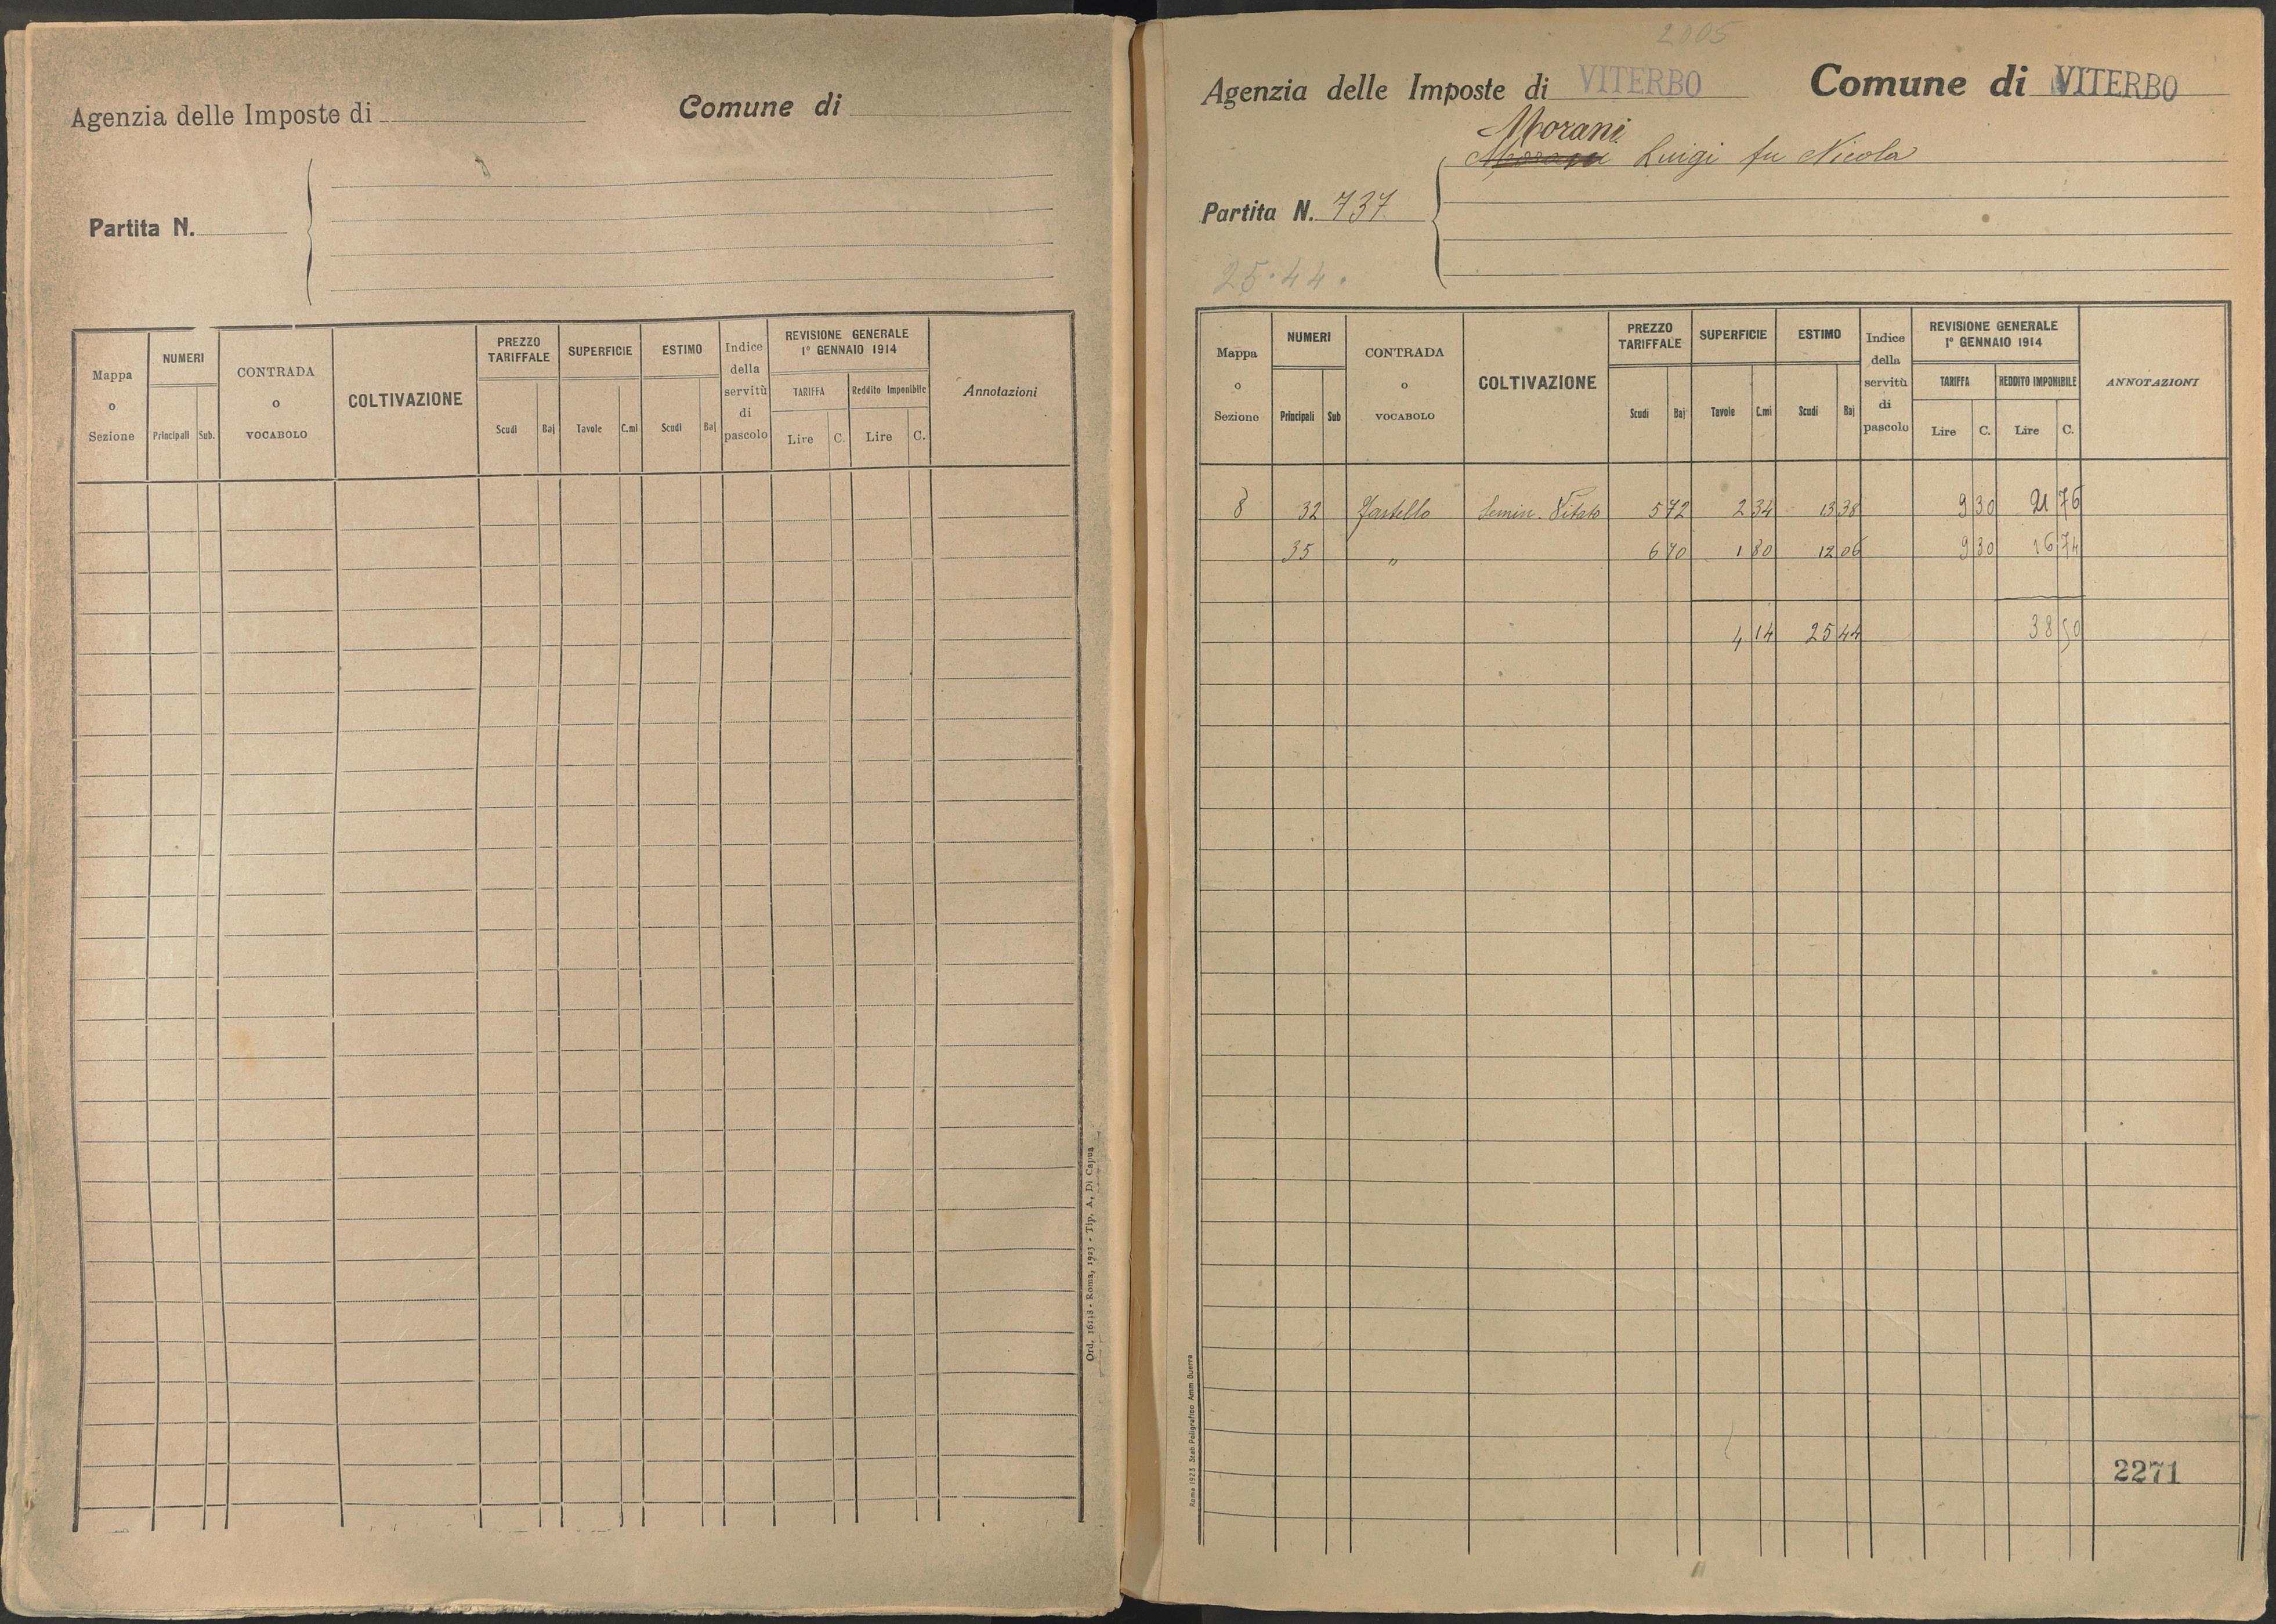 Agenzia delle Imposte di
Comune di
Partita N.
Mappa o Sezione
NUMERI
Principali Sub.
CONTRADA o VOCABOLO
COLTIVAZIONE
PREZZO TARIFFALE
Scudi Baj
SUPERFICIE
Tavole C.mi
ESTIMO
Scudi Baj
Indice della servitù di pascolo
REVISIONE GENERALE
1° GENNAIO 1914
TARIFFA Reddito Imponibile
Lire C. Lire C.
Annotazioni
Ord. 16148 - Roma, 1923 - Tip. A. Di Capua
2005
Agenzia delle Imposte di VITERBO Comune di VITERBO
Morani
Luigi fu Nicola
Partita N. 737
25.44.
Mappa o Sezione
NUMERI
Principali Sub
CONTRADA o VOCABOLO
COLTIVAZIONE
PREZZO TARIFFALE
Scudi Baj
SUPERFICIE
Tavole C.mi
ESTIMO
Scudi Baj
Indice della servitù di pascolo
REVISIONE GENERALE
1° GENNAIO 1914
TARIFFA REDDITO IMPONIBILE
Lire C. Lire C.
ANNOTAZIONI
8 32 Semin. Vitato 5 72 2 34 13 38 9 30 21 76
35 " 6 70 1 80 12 06 9 30 16 74
4 14 25 44 38 50
Roma 1923 Stab Poligrafico Amm Guerra
2271